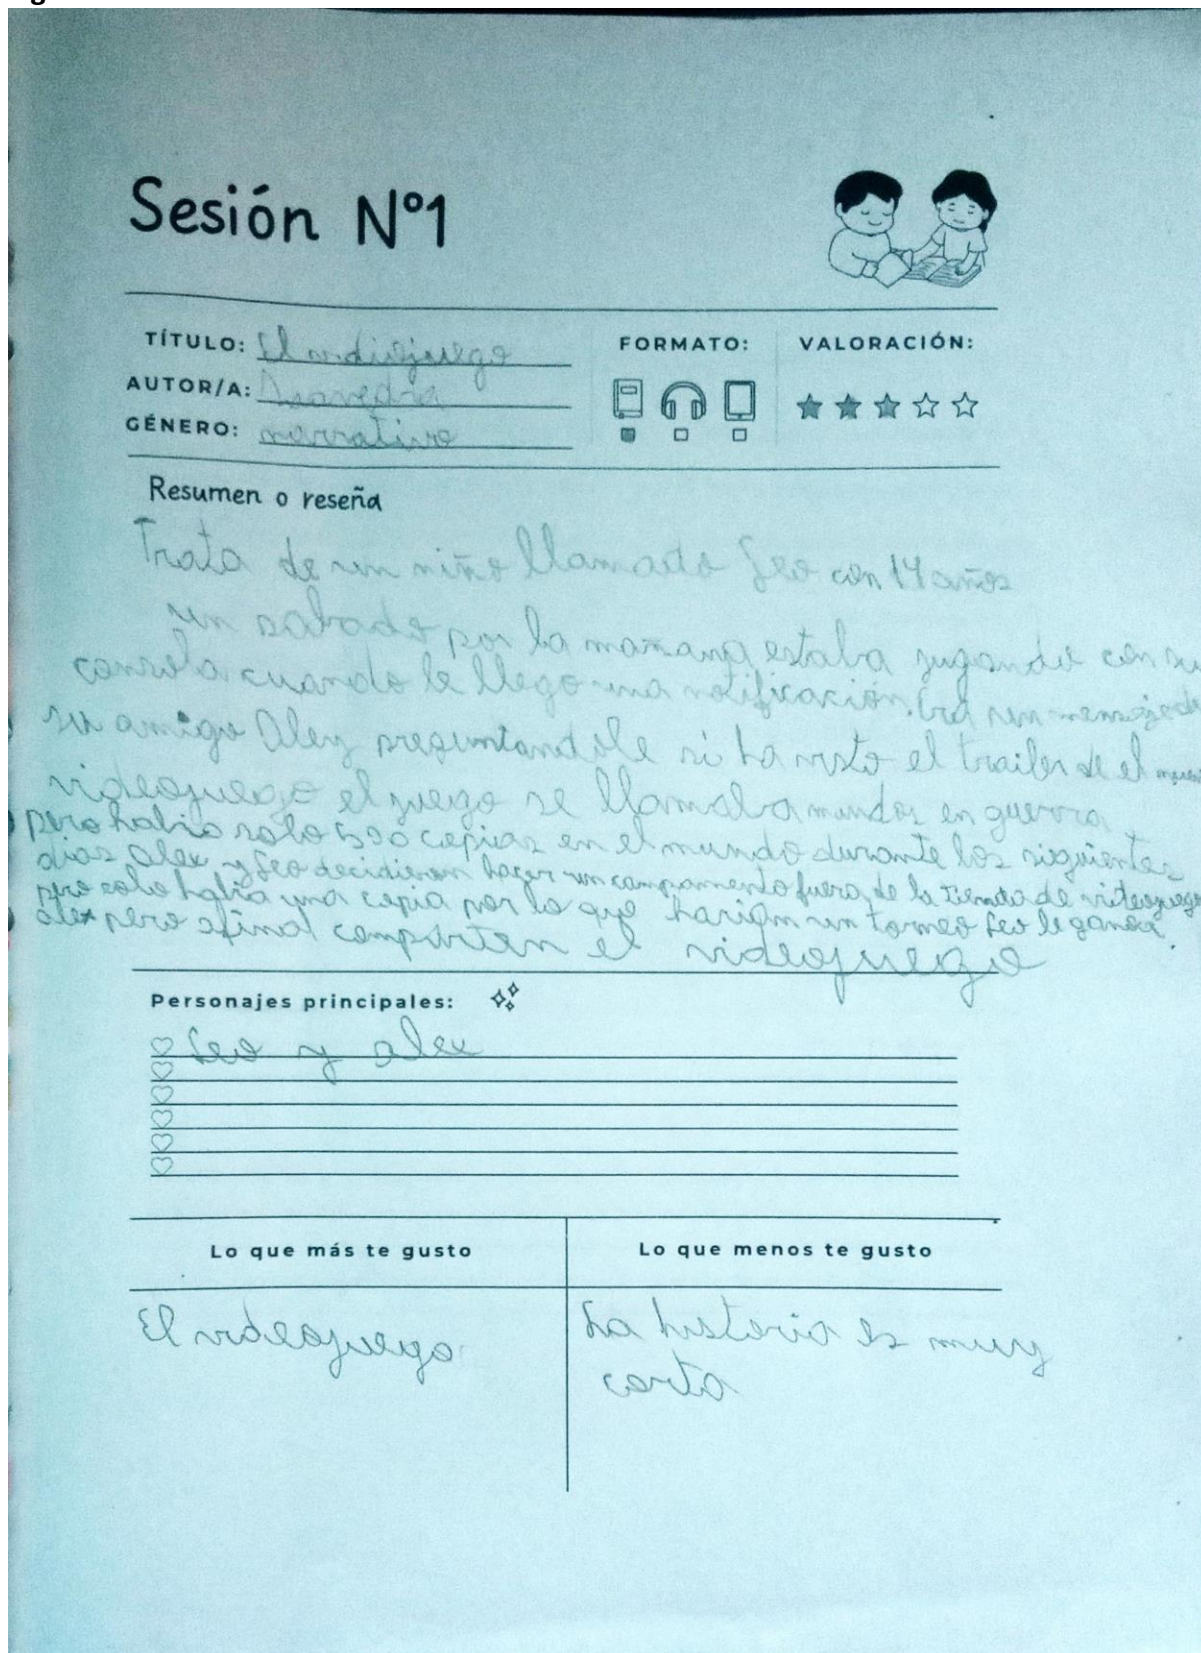 Sesión Nº1
TÍTULO: El vidiojuego
AUTOR/A:
GÉNERO: narrativo
FORMATO:
VALORACIÓN:
Resumen o reseña
Trata de un niño llamado Leo con 14 años
un sabado por la mañana estaba jugando con su
consola cuando le llego una notificación. Era un mensaje de
su amigo Alex preguntandole si ha visto el trailer de el
videojuego el juego se llamaba mundos en guerra
pero habia solo 500 copias en el mundo durante los siguientes
dias Alex y Leo decidieron hacer un campamento fuera de la tienda de videojuego
pero solo habia una copia por lo que harian un torneo Leo le gana a
alex pero al final comparten el videojuego
Personajes principales:
Leo y alex
Lo que más te gusto
Lo que menos te gusto
El videojuego
La historia es muy
corta